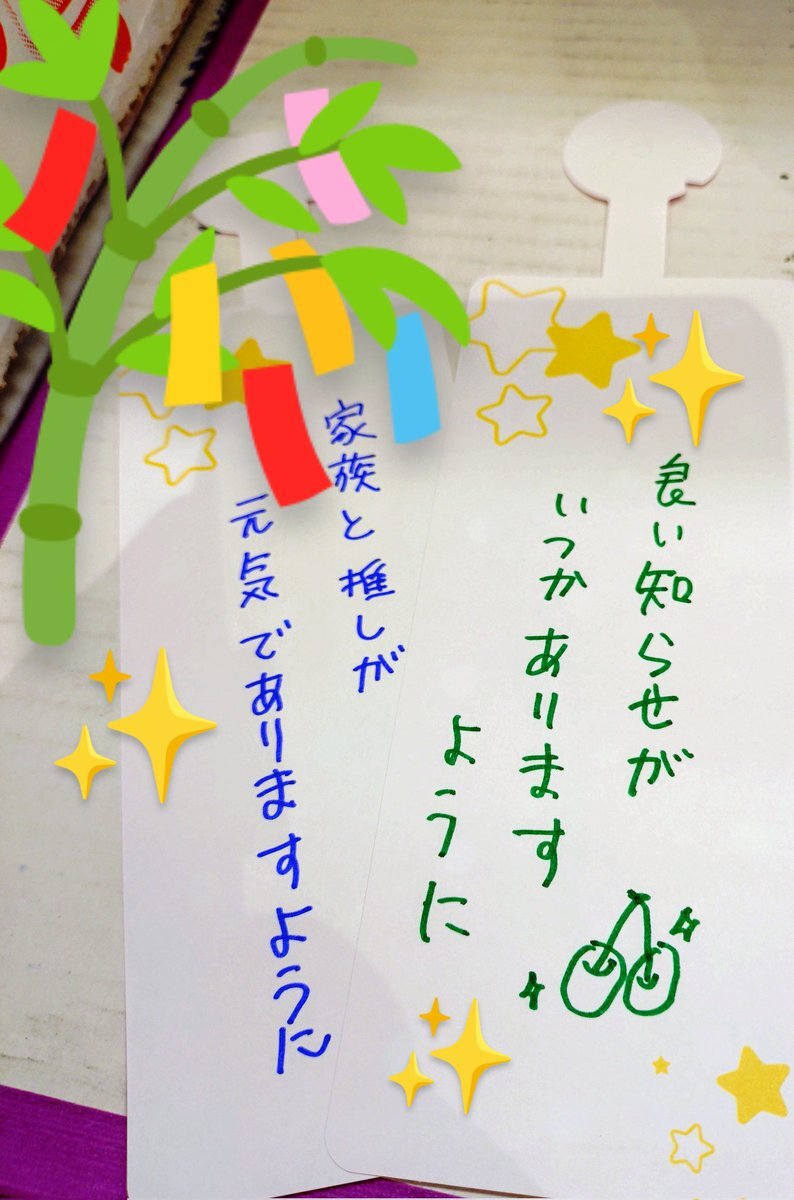 良い知らせが
いつかあります
ように
家族と推しが
元気でありますように